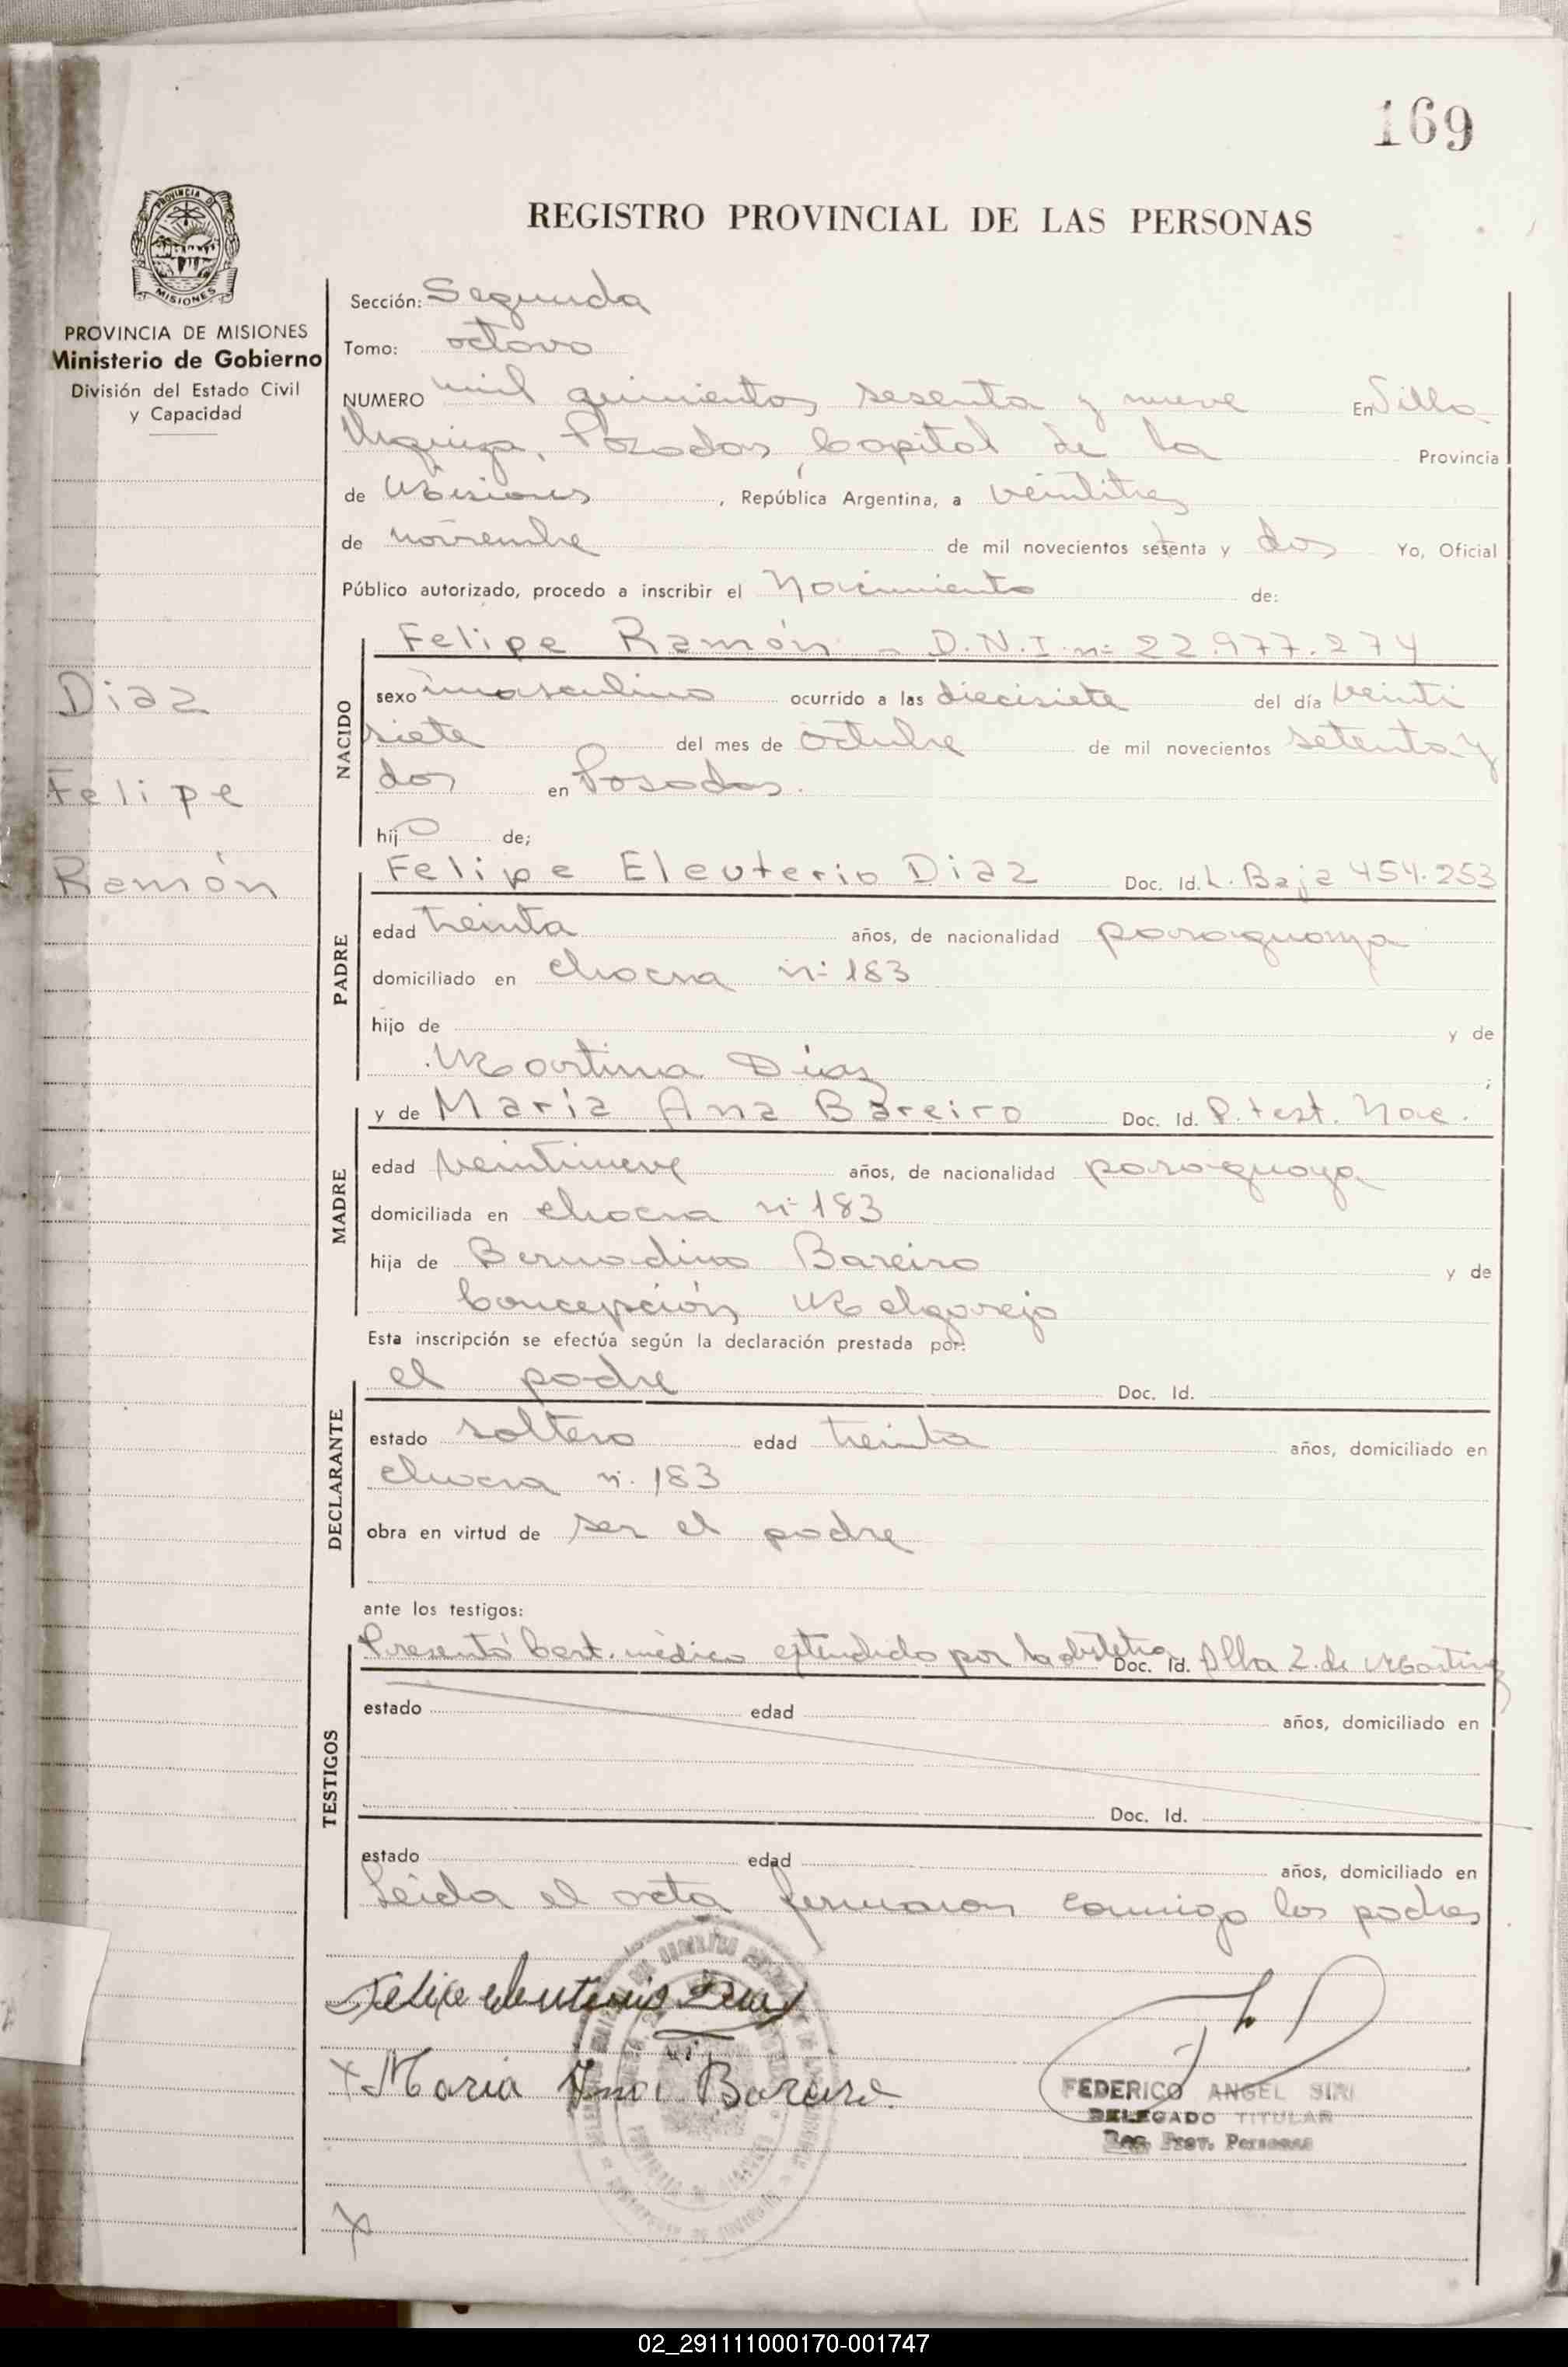 169
REGISTRO PROVINCIAL DE LAS PERSONAS
PROVINCIA DE MISIONES
Ministerio de Gobierno
División del Estado Civil
y Capacidad
Diaz
Felipe
Ramón
Sección: Segunda
Tomo: octavo
NUMERO mil quinientos sesenta y nueve En Villa
Urquiza, Posadas, Capital de la Provincia
de Misiones, República Argentina, a veintitres
de noviembre de mil novecientos setenta y dos Yo, Oficial
Público autorizado, procedo a inscribir el Nacimiento de:
NACIDO
Felipe Ramón - D.N.I. nº 22.977.274
sexo masculino ocurrido a las diecisiete del día veinti
siete del mes de octubre de mil novecientos setenta y
dos en Posadas.
hijo de;
PADRE
Felipe Eleuterio Diaz Doc. Id. L. Baja 454.253
edad treinta años, de nacionalidad paraguaya
domiciliado en chacra nº 183
hijo de y de
Martina Diaz ;
MADRE
y de María Ana Bareiro Doc. Id. P. test. Nac.
edad veintinueve años, de nacionalidad paraguaya
domiciliada en chacra nº 183
hija de Bernardino Bareiro y de
Concepción Melgarejo
Esta inscripción se efectúa según la declaración prestada por:
DECLARANTE
el padre Doc. Id.
estado soltero edad treinta años, domiciliado en
chacra nº 183
obra en virtud de ser el padre
ante los testigos:
TESTIGOS
Presentó Cert. médico extendido por la obstetra Doc. Id. Alba Z. de Martinez
estado edad años, domiciliado en
Doc. Id.
estado edad años, domiciliado en
Leida el acta firmaron conmigo los padres
Felipe eleuterio Diaz
x Maria Ana Bareiro
FEDERICO ANGEL SIRI
DELEGADO TITULAR
Reg. Prov. Personas
x
02_291111000170-001747